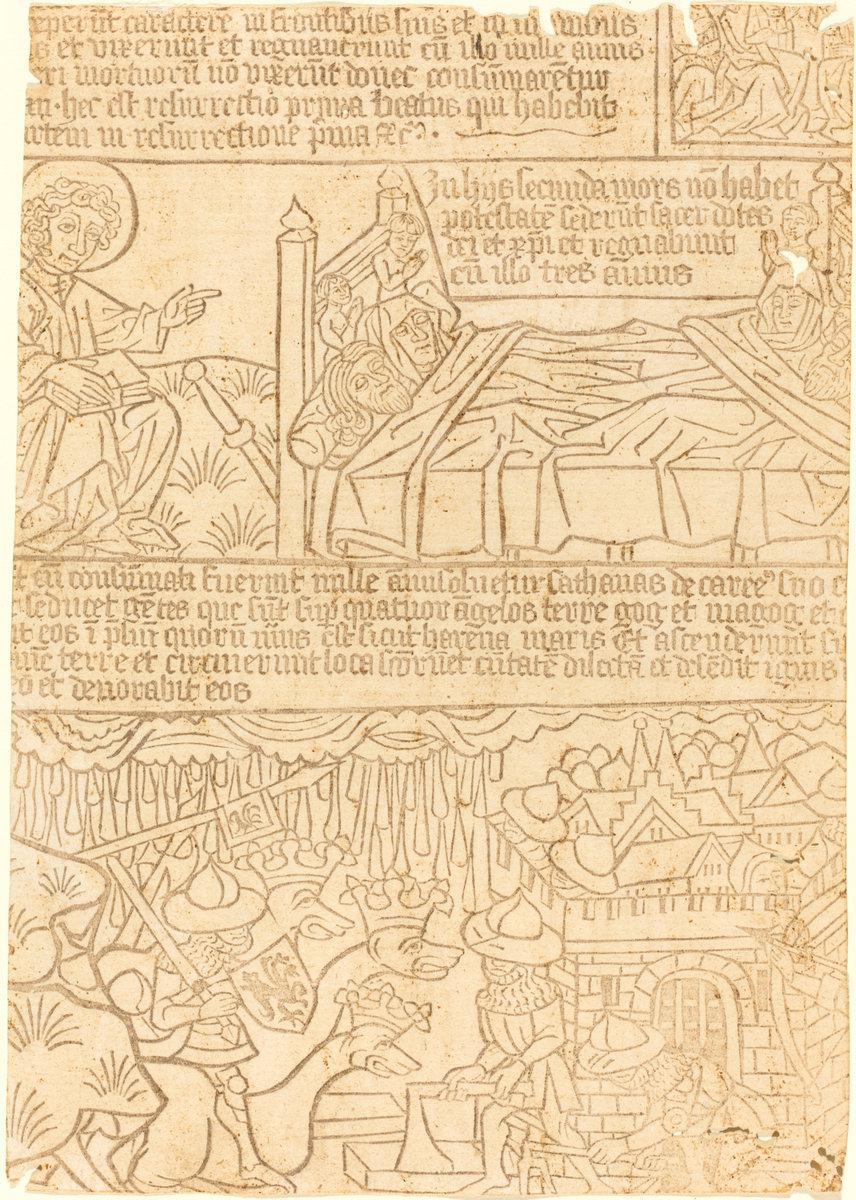 eperūt caracterē in frontibus suis et in manibus
s et vixerunt et regnaverunt cū illo mille annis
ri mortuorū nō vixerūt donec consūmarētur
an · hec est resurrectio prima Beatus qui habebit
artem in resurrectione pīma
In hijs secunda mors nō habet
potestatē seierūt sacerdotes
dei et xpi et regnabunt
cū illo tres annis
t cū consūmati fuerint mille anni soluetur sathanas de carceˀ suo
seducet gētes que sūt suꝑ quatuor āgelos terre gog et magog et
it eos ī pliū quorū nūūs est sicut harena maris Et ascenderunt
terre et circuierunt loca scōrū et ciuitatē dilectā et desēdit ignis
eo et devorabit eos